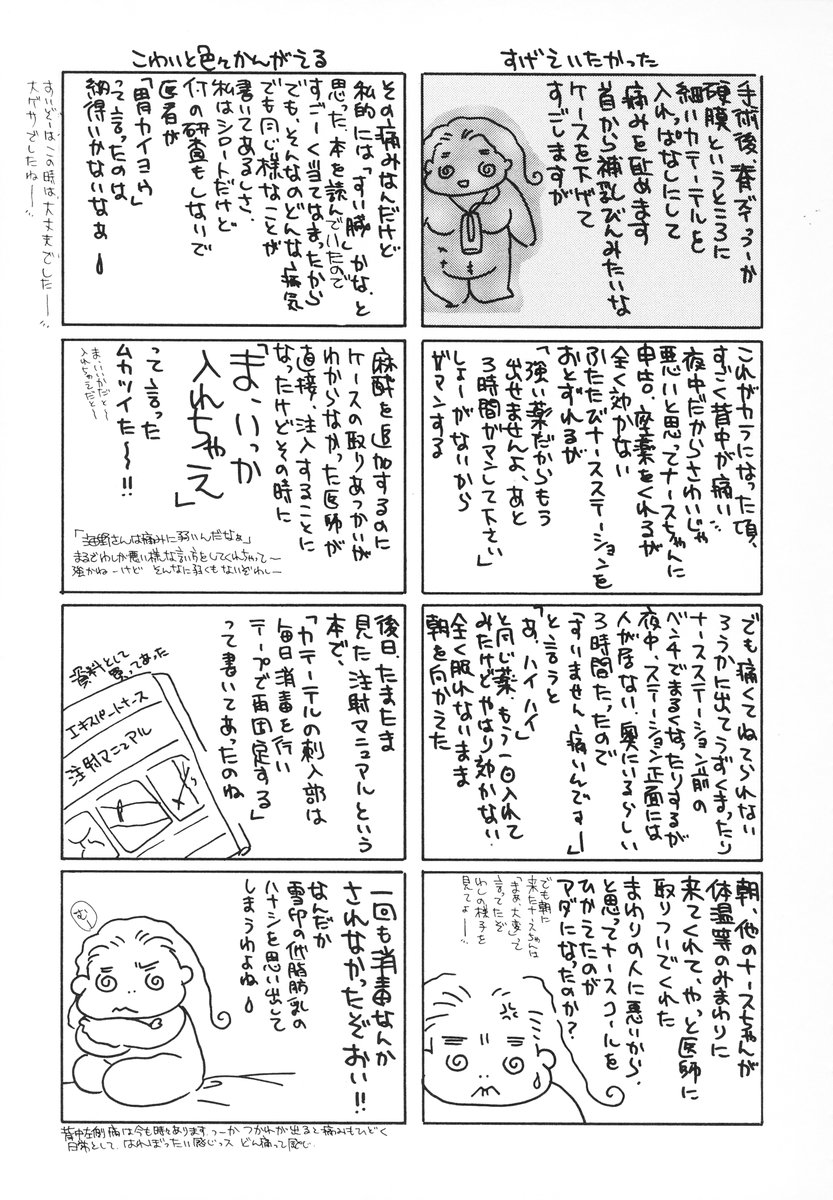 すげえいたかった
手術後、脊ずいっつーか
硬膜というところに
細いカテーテルを
入れっぱなしにして
痛みを止めます
首から補乳びんみたいな
ケースを下げて
すごしますが
これがカラになった頃、
すごく背中が痛い
夜中だからさわいじゃ
悪いと思ってナースちゃんに
申告。座薬をくれるが
全く効かない
ふたたびナースステーションを
おとずれるが
「強い薬だからもう
出せませんよ、あと
3時間ガマンして下さい」
しょーがないから
ガマンする
でも痛くてねてられない
ろうかに出てうずくまったり
ナースステーション前の
ベンチでまるくなったりするが
夜中、ステーション正面には
人が居ない、奥にいるらしい
3時間たったので
「すいません、痛いんですー」
と言うと
「あ、ハイハイ」
と同じ薬、もう一回入れて
みたけどやはり効かない。
全く眠れないまま
朝を向かえた
朝、他のナースちゃんが
体温等のみまわりに
来てくれて、やっと医師に
取りついでくれた
まわりの人に悪いから、
と思ってナースコールを
ひかえたのが
アダになったのか?
でも朝に
来たナースちゃんは
「まぁ、大変」って
言ってたぞ
わしの様子を
見てよー
こわいと色々かんがえる
その痛みなんだけど
私的には「すい臓」かな、と
思った。本を読んでいたので
すごーく当てはまったから
でも、そんなのどんな病気
でも同じ様なことが
書いてあるしさ、
私はシロートだけど
何の研査もしないで
医者が
「胃カイヨウ」
って言ったのは
納得いかないなぁ
すいぞーはこの時は、大丈夫でしたー
大ゲサでしたねー
麻酔を追加するのに
ケースの取りあつかいが
わからなかった医師が
直接、注入することに
なったけどその時に
「まいっか
入れちゃえ」
って言った
ムカツイた〜!!
ま、いいかだと〜
入れちゃえだと〜
「海野さんは痛みに弱いんだなぁ」
まるでわしが悪い様な言い方をしてくれちゃって〜
強かねーけど そんなに弱くもないぞわしー
後日、たまたま
見た注射マニュアルという
本で、
「カテーテルの刺入部は
毎日消毒を行い
テープで再固定する」
って書いてあったのね
資料として
買ってあった
エキスパートナース
注射マニュアル
一回も消毒なんか
されなかったぞおい!!
なんだか
雪印の低脂肪乳の
ハナシを思い出して
しまうわよね
むー
背中左側痛は今も時々あります。つーか つかれが出ると痛みもひどく
日常として、はれぼったい感じっス どん痛って感じ